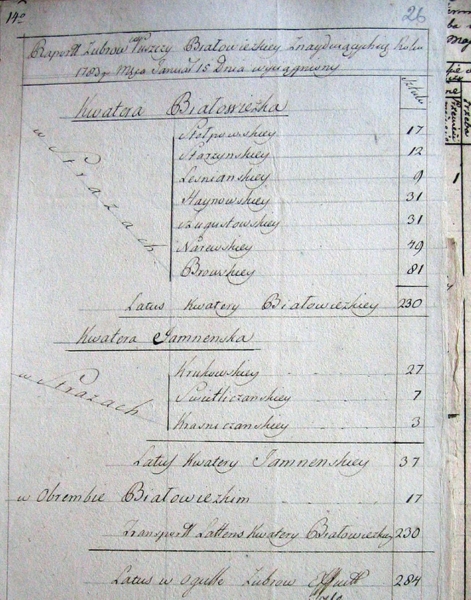 14o 26
Raportt Zubrow Puszczy Białowiezkiey Znayduiących Roku
1783go Msca Januar 15 Dnia wyciągniony
Sztuki
Kwatera Białowiezka
w Strazach
Stołpowskiey 17
Starzynskiey 12
Lesnianskiey 9
Haynowskiey 31
Augustowskiey 31
Narewskiey 49
Browskiey 81
Latus Kwatery Białowiezkiey 230
Kwatera Jamnenska
w Strazach
Krukowskiey 27
Swietliczanskiey 7
Krasniczanskiey 3
Latus Kwatery Jamnenskiey 37
w Obrembie Białowiezkim 17
Transportt Lattens Kwatery Białowiezkiey 230
Latus w ogulle Zubrow 284